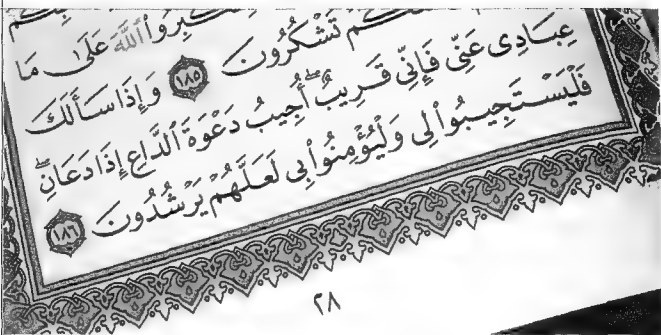 ٱللَّهَ عَلَىٰ مَا
تَشْكُرُونَ ١٨٥ وَإِذَا سَأَلَكَ
عِبَادِى عَنِّى فَإِنِّى قَرِيبٌ ۖ أُجِيبُ دَعْوَةَ ٱلدَّاعِ إِذَا دَعَانِ ۖ
فَلْيَسْتَجِيبُوا۟ لِى وَلْيُؤْمِنُوا۟ بِى لَعَلَّهُمْ يَرْشُدُونَ ١٨٦
٢٨